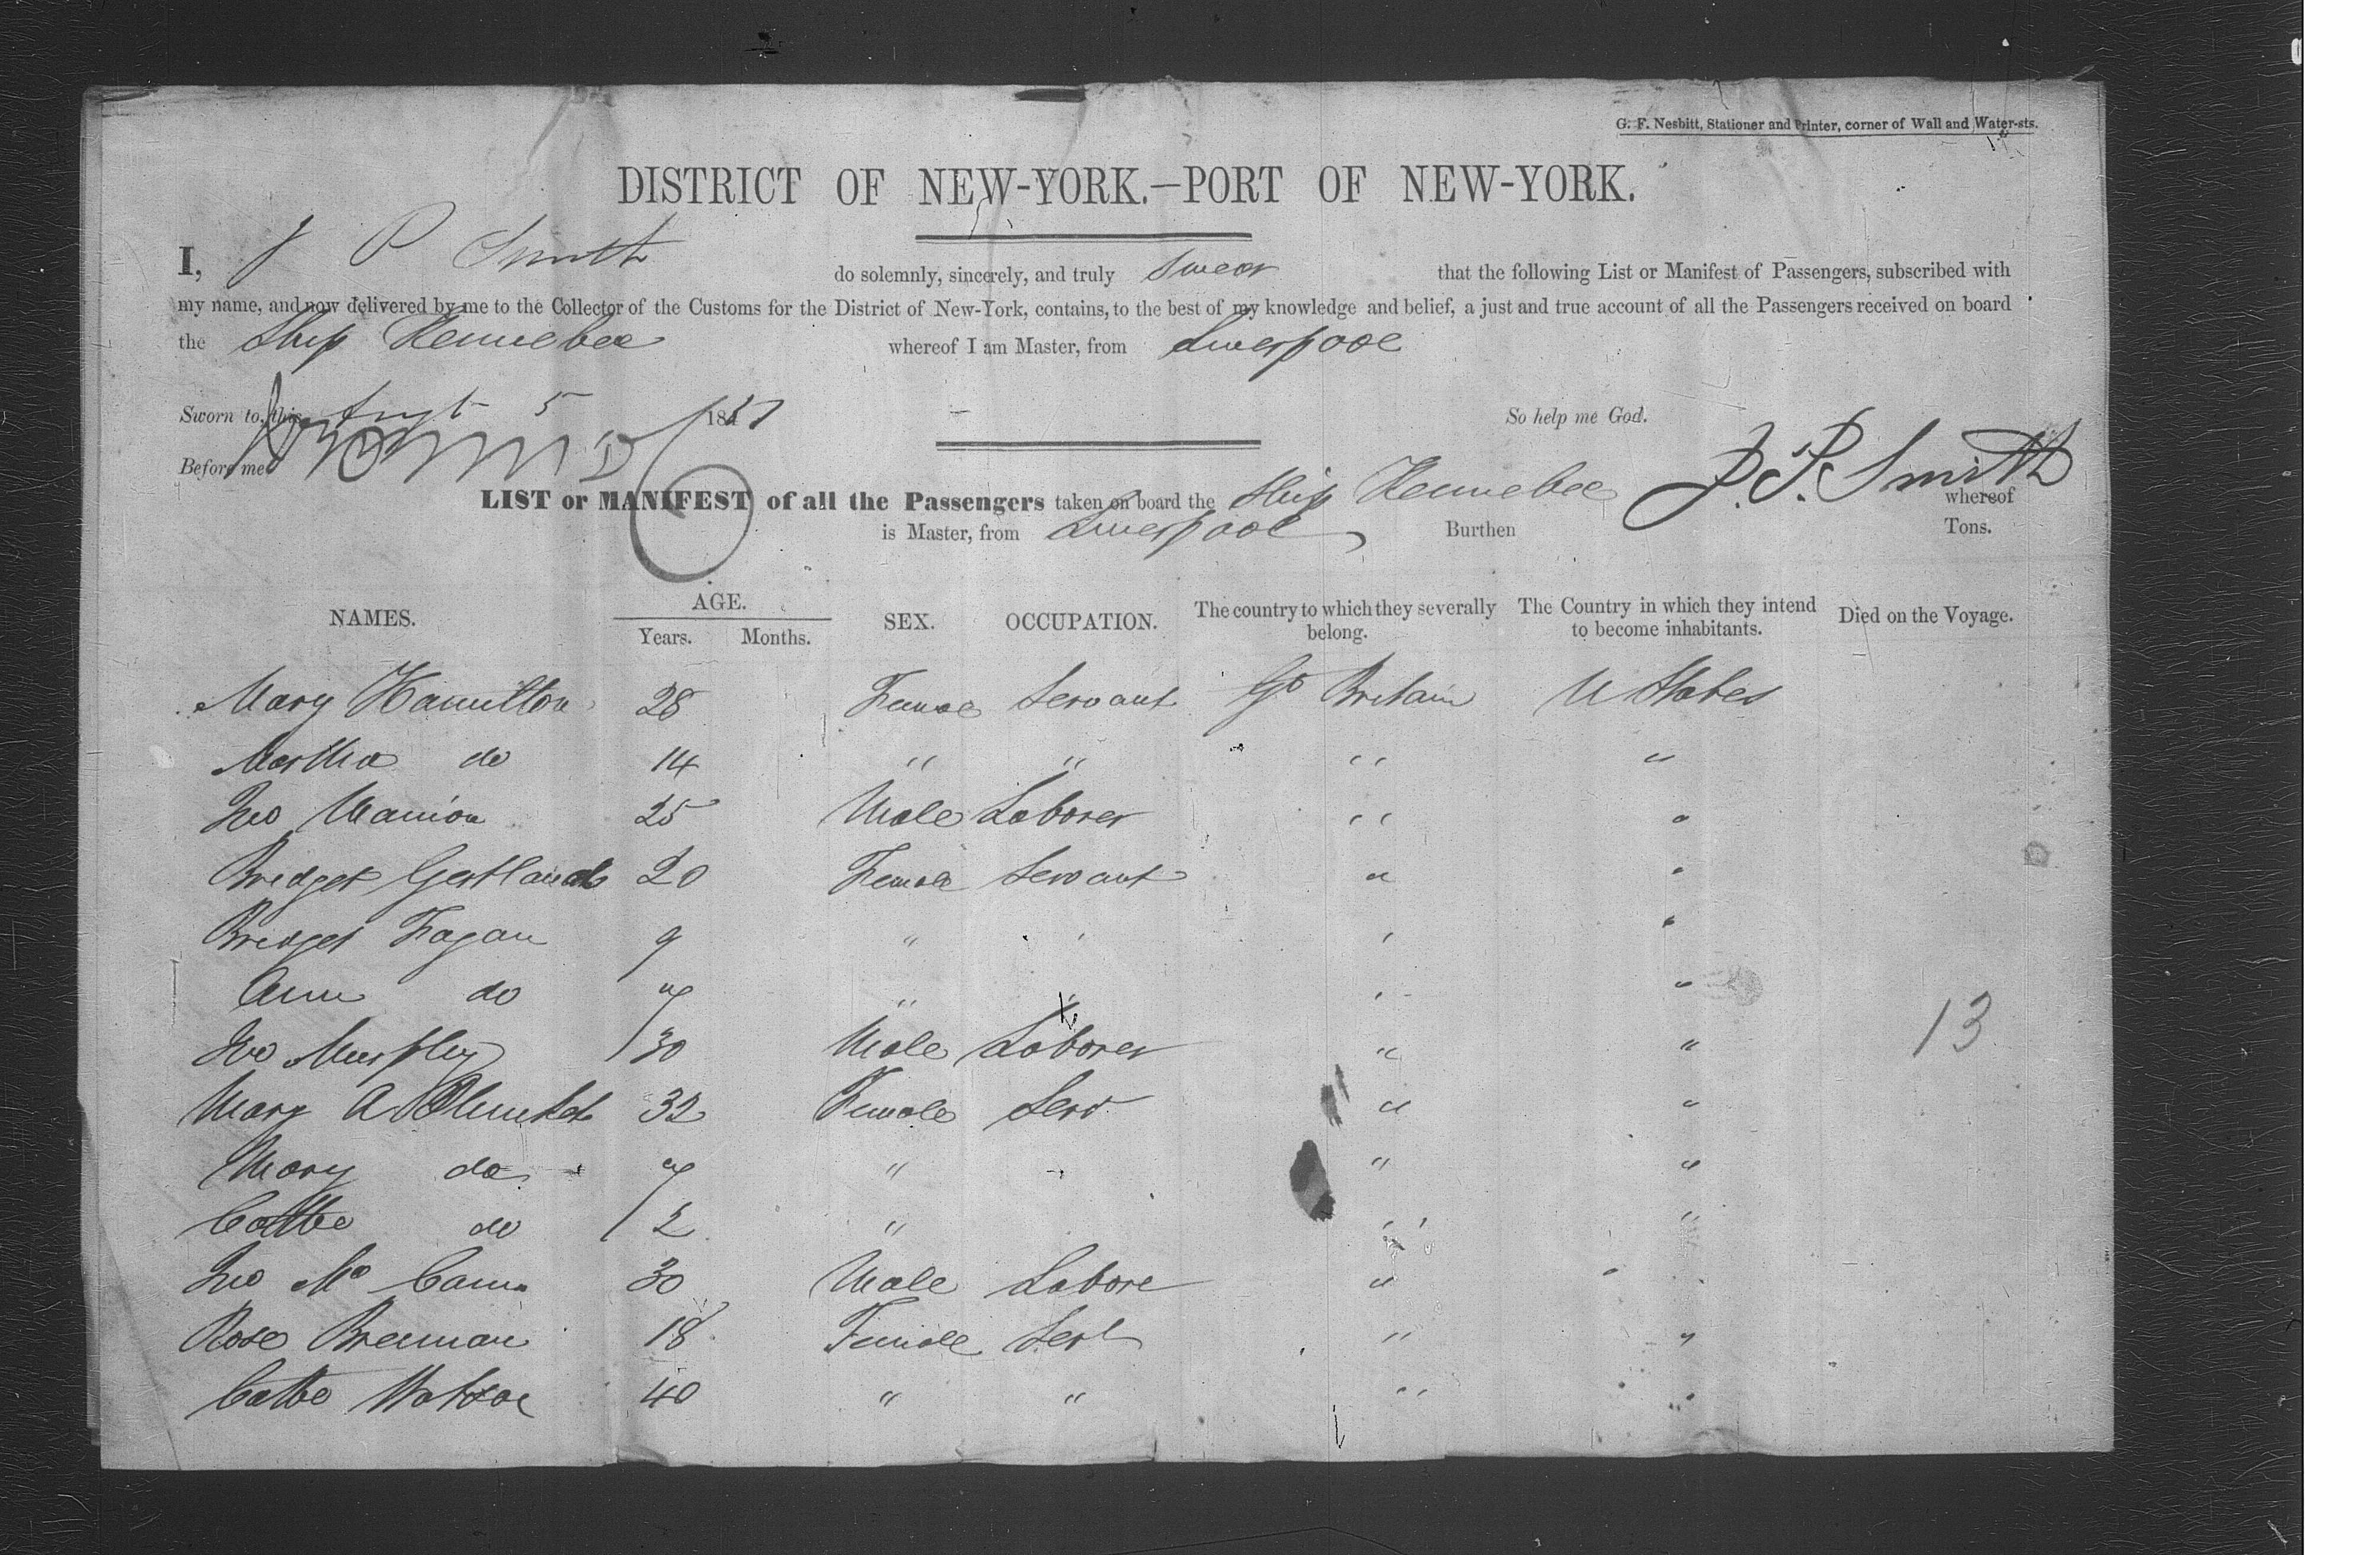 G. F. Nesbitt, Stationer and Printer, corner of Wall and Water-sts.
DISTRICT OF NEW-YORK.—PORT OF NEW-YORK.
I, J P Smith do solemnly, sincerely, and truly swear that the following List or Manifest of Passengers, subscribed with
my name, and now delivered by me to the Collector of the Customs for the District of New-York, contains, to the best of my knowledge and belief, a just and true account of all the Passengers received on board
the Ship Kennebec whereof I am Master, from Liverpool
Sworn to, this Augt 5 1851 So help me God.
Before me J. P. Smith
LIST or MANIFEST of all the Passengers taken on board the Ship Kennebec whereof
is Master, from Liverpool Burthen Tons.
NAMES. AGE. Years. Months. SEX. OCCUPATION. The country to which they severally belong. The Country in which they intend to become inhabitants. Died on the Voyage.
Mary Hamilton 28 Female Servant Gt Britain U States
Martha do 14 " " " "
Jno Manion 25 Male Laborer " "
Bridget Gertland 20 Female Servant " "
Bridget Fagan 9 " " " "
Ann do 7 " " " "
Jno Murphy 30 Male Laborer " "
13
Mary A Plunket 32 Female Serv " "
Mary do 7 " " "
Cathe do 2 " " "
Jno Mc Cann 30 Male Labore "
Rose Brennan 18 Female Sert " "
Cathe 40 " " " "